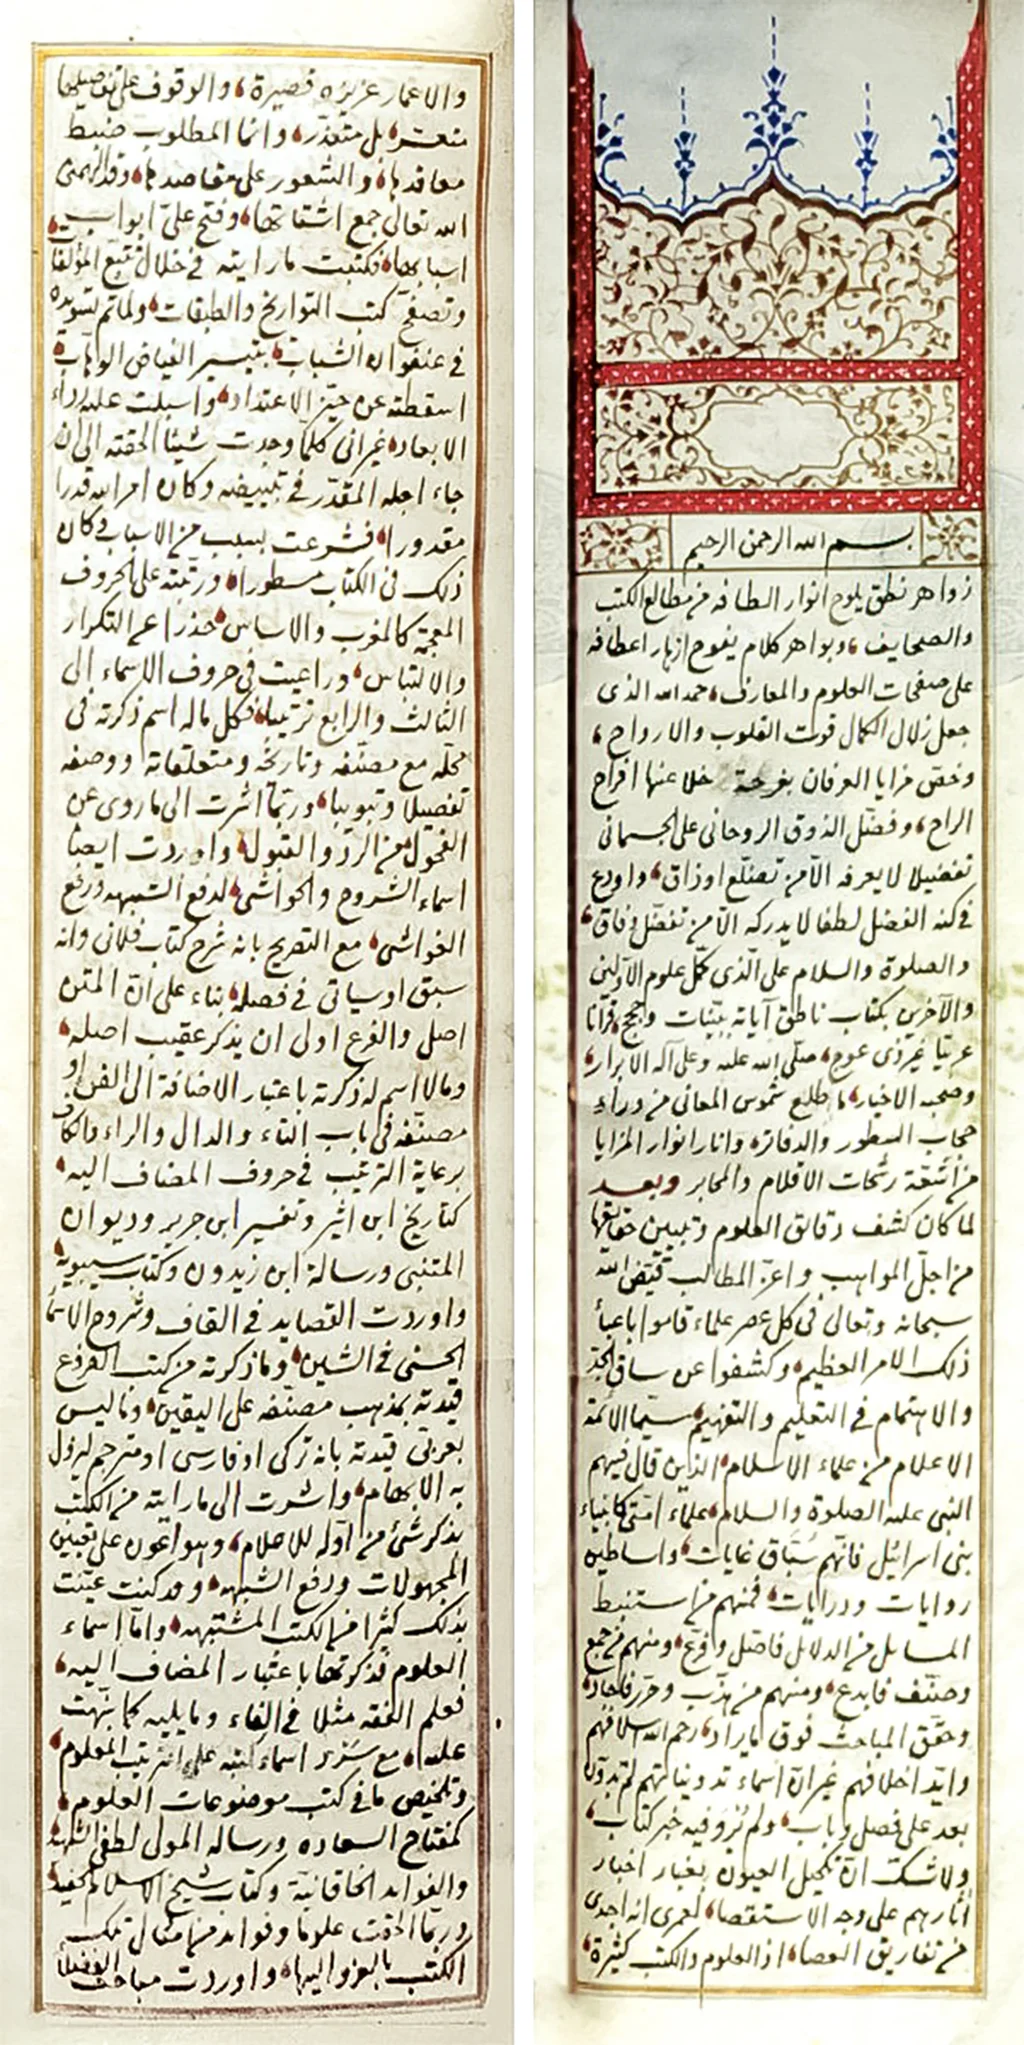 بسم الله الرحمن الرحيم
زواهر نطق يلوح انوار الطافه من مطالع الكتب
والصحايف، وبواهر كلام يفوح ازهار اعطافه
على صفحات العلوم والمعارف، حمد الله الذى
جعل زلال الكمال قوت القلوب والارواح،
وخص مزايا العرفان بفرحة خلا عنها افراح
الراح، وفضّل الذوق الروحانى على الجسمانى
تفضيلا لا يعرفه الّا من تضلّع او ذاق، واودع
فى كنه الفضل لطفا لا يدركه الّا من تفضّل وفاق،
والصلوة والسلام على الّذى كمّل علوم الاولين
والآخرين بكتاب ناطق آياته بيّنات وحجج، قرآنا
عربيّا غير ذى عوج، صلّى الله عليه وعلى آله الابرار،
وصحبه الاخيار، ما طلع شموس المعانى من وراء
حجاب السطور والدفاتر، وانار انوار المزايا
من أشعّة رشحات الاقلام والمحابر وبعد
لما كان كشف دقائق العلوم وتبيين حقايقها
من اجلّ المواهب واعزّ المطالب قيّض الله
سبحانه وتعالى فى كل عصر علماء قاموا باعباء
ذلك الامر العظيم، وكشفوا عن ساق الجدّ
والاهتمام فى التعليم والتفهيم، سيّما الائمة
الاعلام من علماء الاسلام، الذين قال فيهم
النبى عليه الصلوة والسلام، علماء امّتى كانبياء
بنى اسرائيل فانّهم سُبّاق غايات، واساطين
روايات ودرايات، فمنهم من استنبط
المسايل من الدلايل فاصّل وفرّع، ومنهم من جمع
وصنّف فابدع، ومنهم من هذّب وحرّر فاجاد،
وحقّق المباحث فوق ما يراد، رحم الله اسلافهم
وايّد اخلافهم غير انّ اسماء تدويناتهم لم تدوّن
بعد على فصل وباب، ولم يُرو فيه خبر كتاب،
ولا شك انّ تكحيل العيون بغبار اخبار
آثارهم على وجه الاستقصا، لعمرى انه اجدى
من تفاريق العصا، اذ العلوم والكتب كثيرة،
والاعمار عزيزه قصيرة، والوقوف على تفاصيلها
متعسّر، بل متعذّر، وانما المطلوب ضبط
معاقدها، والشعور على مقاصدها، وقد الهمنى
الله تعالى جمع اشتاتها، وفتح علىّ ابواب
اسبابها، فكتبت ما رايته فى خلال تتبّع المؤلفات،
وتصفّح كتب التواريخ والطبقات، ولما تم تسويده
فى عنفوان الشباب، بتيسير الفياض الوهاب،
اسقطته عن حيّز الاعتداد، واسبلت عليه رداء
الابعاد، غير انى كلما وجدت شيئا الحقته الى ان
جاء اجله المقدّر فى تبييضه وكان امر الله قدرا
مقدورا، فشرعت بسبب من الاسباب فى كان
ذلك فى الكتاب مسطورا، ورتّبته على الحروف
المعجمة كالمغرب والاساس، حذرا عن التكرار
والالتباس، وراعيت فى حروف الاسماء الى
الثالث والرابع ترتيبا، فكل ما له اسم ذكرته فى
محلّه مع مصنّفه وتاريخه ومتعلقاته ووصفه
تفصيلا وتبويبا، وربّما اشرت الى ما روى عن
الفحول من الردّ والقبول، واوردت ايضا
اسماء الشروح والحواشى، لدفع الشبهه ورفع
الغواشى، مع التصريح بانه شرح كتاب فلانى وانه
سبق او سياتى فى فصله، بناء على انّ المتن
اصل والفرع اولى ان يذكر عقيب اصله،
وما لا اسم له ذكرته باعتبار الاضافة الى الفن او
مصنّفه فى باب التاء والدال والراء والكاف
برعاية الترتيب فى حروف المضاف اليه،
كتاريخ ابن اثير وتفسير ابن جرير وديوان
المتنبى ورسالة ابن زيدون وكتاب سيبويه،
واوردت القصايد فى القاف وشروح الاسماء
الحسنى فى الشين، وما ذكرته من كتب الفروع
قيّدته بمذهب مصنّفه على اليقين، وما ليس
بعربى قيّدته بانه تركى او فارسى او مترجم ليزول
به الابهام، واشرت الى ما رايته من الكتب
بذكر شئ من اوّله للاعلام، وهو اعون على تعيين
المجهولات ودفع الشبهه، وقد كنت عيّنت
بذلك كثيرا من الكتب المشتبهه، وامّا اسماء
العلوم فذكرتها باعتبار المضاف اليه،
فعلم الفقه مثلا فى الفاء وما يليه كما نبّهت
عليه، مع سَرْد اسماء كتبه على الترتيب المعلوم،
وتلخيص ما فى كتب موضوعات العلوم،
كمفتاح السعاده ورساله المولى لطفى الشهيد،
والفوايد الخاقانيّة وكتاب شيخ الاسلام الحفيد،
وربّما الحقت علوما وفوايد من امثال تلك
الكتب بالعزو اليها، واوردت مباحث الفضلا